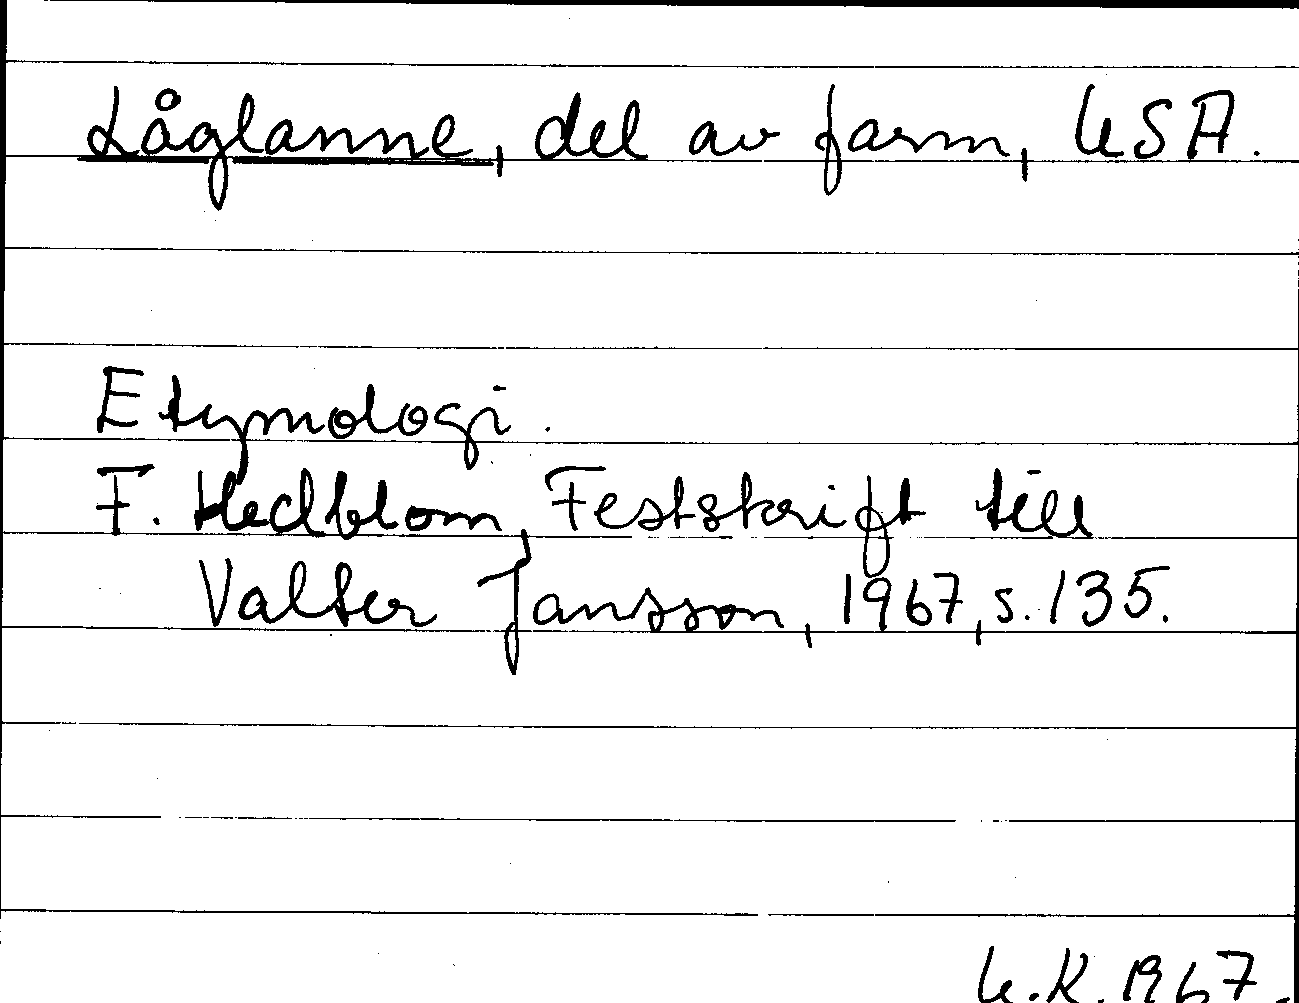 Låglanne, del av farm, USA.
Etymologi.
F. Hedblom, Festskrift till
Valter Jansson, 1967, s. 135.
U.K. 1967.